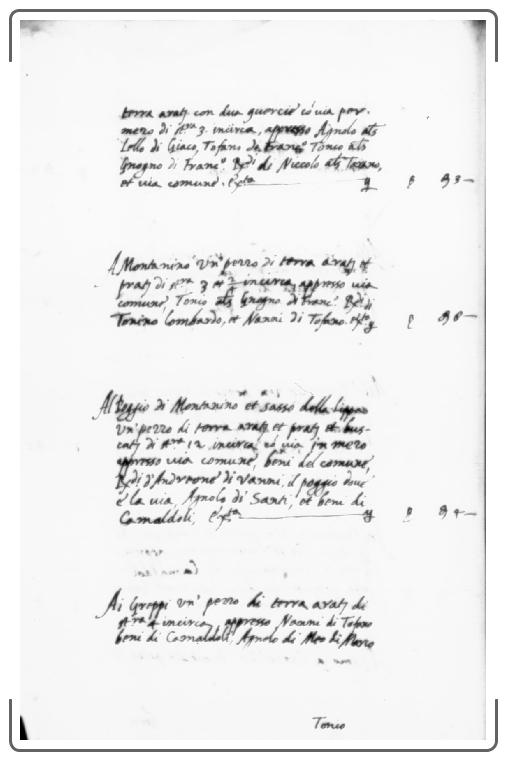 terra arati con dua quercie có via per
mezo di st.ra 3. incirca, appresso Agnolo als
Lello di Giaco, Tofano de Franc.o Tonco als
Gnogno di Franc.o R.di di Niccolo als Tozano,
et via comune. exta 93—
A Montanino un' pezzo di terra arati et
prati di st.ra 3 et incirca appresso via
comune, Tonco als Gnogno di Franc.o R.di di
Tonino Lombardo, et Nanni di Tofano. exta 98—
Al Poggio di Montanino et sasso della lippao
un' pezzo di terra arati et prati et bus-
cati di st.ra 12 incirca có via in mezo
appresso via comune, beni del comune,
R.di d'Andreone di Vanni, il poggio dove
é la via, Agnolo di Santi, et beni di
Camaldoli, exta 94—
Ai Greppi un' pezzo di terra arati di
st.ra 4 incirca, appresso Nanni di Tofano
beni di Camaldoli, Agnolo di Meo di
Tonco